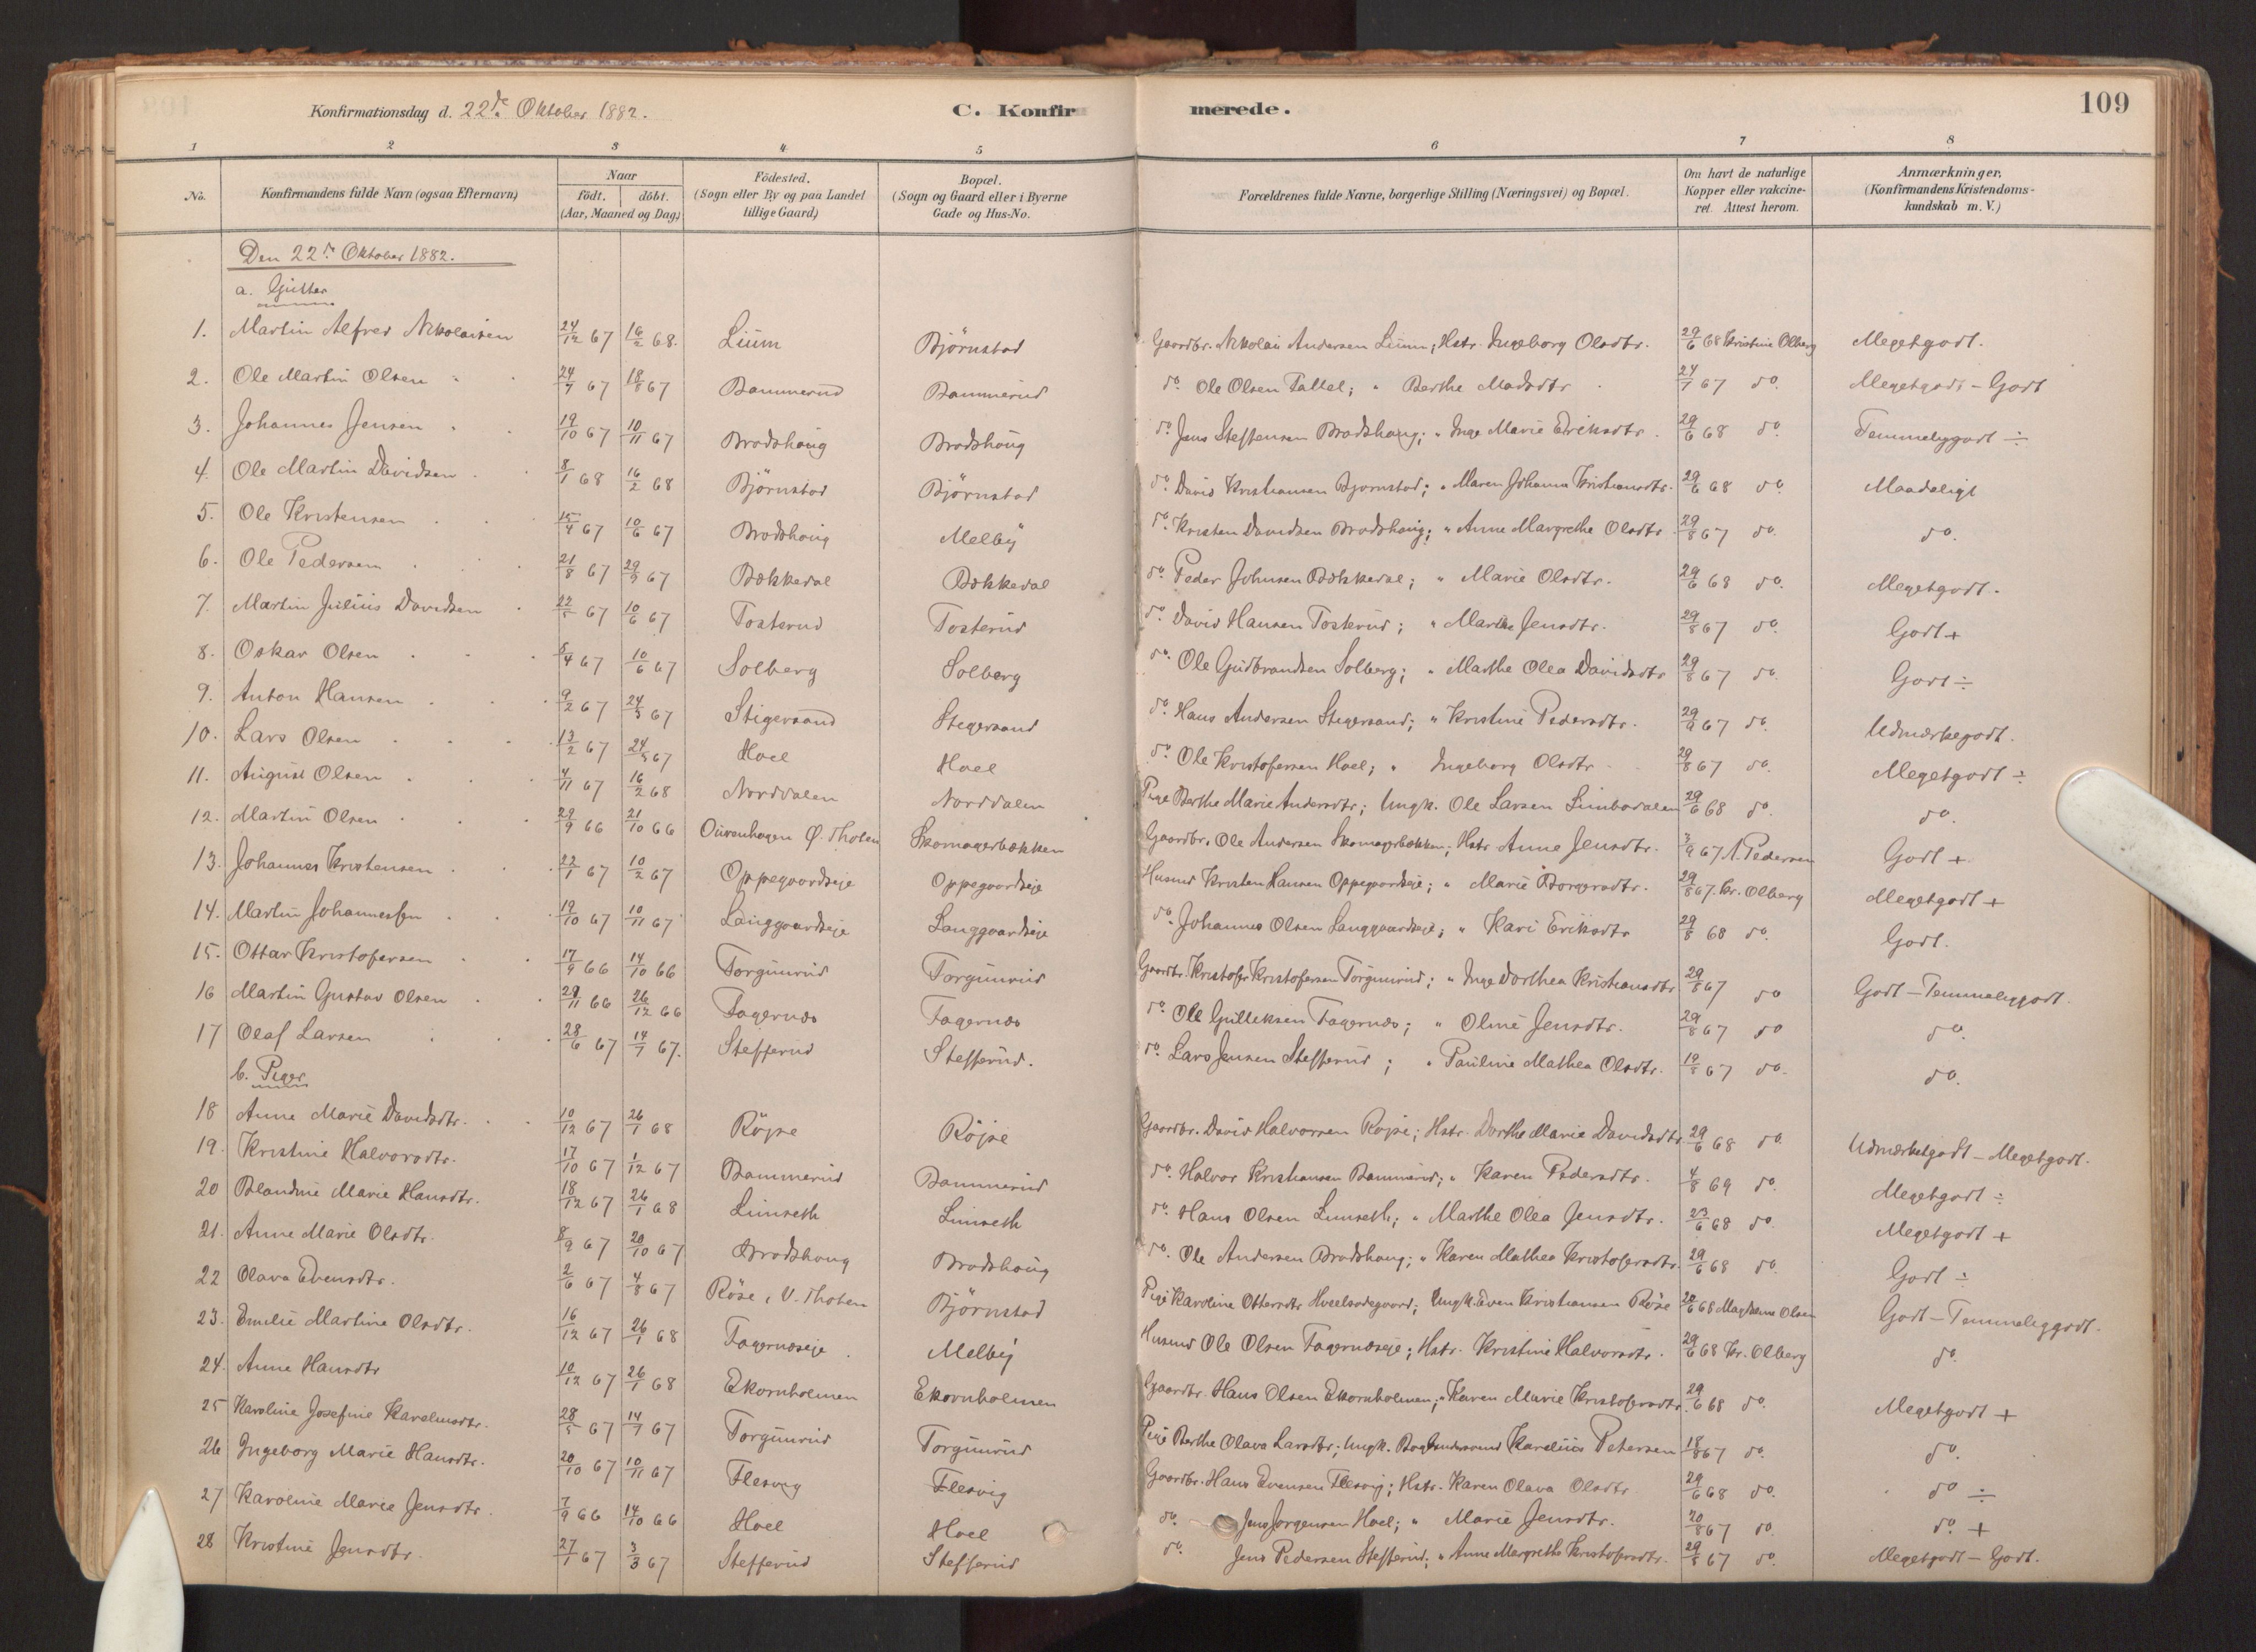 Konfirmationsdag d. 22de Oktober 1882.
C. Konfirmerede.
109
1 2 3 4 5 6 7 8
No. Konfirmandens fulde Navn (ogsaa Efternavn) Naar födt. döbt. (Aar, Maaned og Dag.) Födested. (Sogn eller By og paa Landet tillige Gaard) Bopæl. (Sogn og Gaard eller i Byerne Gade og Hus-No. Forældrenes fulde Navne, borgerlige Stilling (Næringsvei) og Bopæl. Om havt de naturlige Kopper eller vakcineret. Attest herom. Anmærkninger. (Konfirmandens Kristendomskundskab m. V.)
Den 22de Oktober 1882.
a. Gutter
1. Martin Alfred Nikolaisen 24/12 67 16/2 68. Lium Bjørnstad Gaardbr. Nikolai Andersen Lium; Hstr. Ingeborg Olsdtr. 29/6 68 Kristine Olberg Megetgodt.
2. Ole Martin Olsen 24/7 67 18/8 67 Bammerud Bammerud do. Ole Olsen Faltel; " Berthe Madsdtr 24/7 67 do. Megetgodt - Godt
3. Johannes Jensen 19/10 67 10/11 67 Brodshaug Brodshaug do. Jens Steffensen Brodshaug; " Inge Marie Eriksdtr. 29/6 68 do. Temmeliggodt ÷
4. Ole Martin Davidsen 8/1 68 16/2 68 Bjørnstad Bjørnstad do. David Kristiansen Bjørnstad; " Maren Johanne Kristiansdtr. 29/6 68 do. Maadeligt
5. Ole Kristensen 15/4 67 10/6 67 Brodshaug Melby do. Kristen Davidsen Brodshaug; " Anne Margrethe Olsdtr 29/8 67 do. do.
6. Ole Pedersen 21/8 67 29/9 67 Bækkedal Bækkedal do. Peder Johnsen Bækkedal; " Marie Olsdtr. 29/6 68 do. Megetgodt.
7. Martin Julius Davidsen 22/5 67 10/6 67 Tosterud Tosterud do. David Hansen Tosterud; " Marthe Jensdtr. 29/8 67 do. Godt +
8. Oskar Olsen 5/4 67 10/6 67 Solberg Solberg do. Ole Gudbrandsen Solberg; " Marthe Olea Davidsdtr 29/8 67 do. Godt ÷
9. Anton Hansen 9/2 67 24/3 67 Stigersand Stegersand do. Hans Andersen Stegersand; " Kristine Pedersdtr. 29/8 67 do. Udmærkegodt.
10. Lars Olsen 13/2 67 24/3 67 Hoel Hoel do. Ole Kristofersen Hoel; " Ingeborg Olsdtr 29/8 67 do. Megetgodt ÷
11. August Olsen 4/11 67 16/2 68 Norddalen Norddalen Pige Berthe Marie Andersdtr; Ungk. Ole Larsen Limbodalen 29/6 68 do. do.
12. Martin Olsen 29/9 66 21/10 66 Ourenhagen Ø. Thoten Skomagerbækken Gaardbr. Ole Andersen Skomagerbækken; Hstr Anne Jensdtr. 3/9 67 A. Pedersen Godt +
13. Johannes Kristensen 22/1 67 10/2 67 Oppegaardseje Oppegaardseje Husmd Kristen Hansen Oppegaardseje; " Marie Borgersdtr. 29/8 67. Kr. Olberg Megetgodt +
14. Martin Johannessen 19/10 67 10/11 67 Langgaardseje Langgaardseje do. Johannes Olsen Langgaardseje; " Kari Eriksdtr 29/8 68 do. Godt.
15. Ottar Kristofersen 17/9 66 14/10 66 Torgunrud Torgunrud Gaardbr. Kristofer Kristofersen Torgunrud; " Inge Dorthea Kristiansdtr 29/8 67 do Godt - Temmeliggodt.
16 Martin Gustav Olsen 29/11 66 26/12 66 Fagernæs Fagernæs do. Ole Gulleksen Fagernæs; " Oline Jensdtr. 29/8 67 do do.
17 Olaf Larsen 28/6 67 14/7 67. Stefferud Stefferud. do. Lars Jensen Stefferud; " Pauline Mathea Olsdtr. 19/8 67 do. do.
b. Piger
18 Anne Marie Davidsdtr. 10/12 67 26/1 68 Röjse Röjse Gaardbr. David Halvorsen Röjse; Hstr. Dorthe Marie Davidsdtr 29/6 68 do. Udmærketgodt - Megetgodt.
19. Kristine Halvorsdtr. 17/10 67 1/12 67 Bammerud Bammerud do. Halvor Kristiansen Bammerud; " Karen Pedersdtr. 4/8 69 do. Megetgodt ÷
20 Blandine Marie Hansdtr. 18/12 67 26/1 68 Limseth Limseth do. Hans Olsen Limseth; " Marthe Olea Jensdtr. 23/6 68 do. Megetgodt +
21. Anne Marie Olsdtr. 8/9 67 20/10 67 Brodshaug Brodshaug do. Ole Andersen Brodshaug; " Karen Mathea Kristofersdtr. 29/6 68 do. Godt ÷
22 Olava Evensdtr. 2/6 67 4/8 67 Röse, V. Thoten Bjørnstad Pige Karoline Ottersdtr Ungk. Even Kristiansen Röse 20/6 68 Magdalene Olsen Godt - Temmeliggodt.
23. Emelie Martine Olsdtr. 16/12 67 26/1 68 Fagernæseje Melby Husmd Ole Olsen Fagernæseje; Hstr. Kristine Halvorsdtr. 29/6 68 Kr. Olberg do.
24. Anne Hansdtr 10/12 67 26/1 68 Ekornholmen Ekornholmen Gaardbr. Hans Olsen Ekornholmen; " Karen Marie Kristofersdtr 29/6 68 do. Megetgodt +
25 Karoline Josefine Karelinsdtr. 28/5 67 14/7 67 Torgunrud Torgunrud Pige Berthe Olava Larsdtr; Ungk. Karelius Petersen 18/8 67 do. do.
26 Ingeborg Marie Hansdtr. 20/10 67 10/11 67 Flesvig Flesvig Gaardbr. Hans Evensen Flesvig; Hstr. Karen Olava Olsdtr 29/6 68 do. do ÷
27 Karoline Marie Jensdtr. 7/9 66 14/10 66 Hoel Hoel do. Jens Jørgensen Hoel; " Marie Jensdtr. 20/8 67 do. do. +
28 Kristine Jensdtr. 27/1 67 3/3 67 Stefferud Stefferud do. Jens Pedersen Stefferud; " Anne Margrethe Kristofersdtr. 29/8 67 do. Megetgodt - Godt.